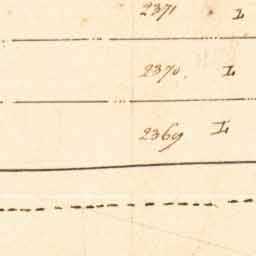 2371 L
2370. L
2369 L